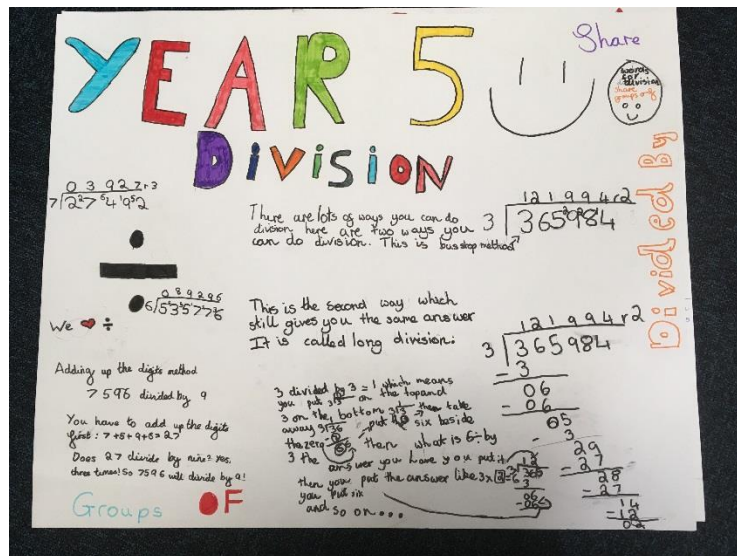 YEAR 5
Share
words
for
division
share
groups of
DIVISION
Divided By
0 3 9 2 7 r 3
7 2²7⁶4¹9⁵2
÷
0 8 9 2 9 6
There are lots of ways you can do
division here are two ways you
can do division. This is bus stop method
1 2 1 9 9 4 r 2
3 365²9²8¹4
We ❤ ÷
This is the second way which
still gives you the same answer
It is called long division:
1 2 1 9 9 4 r 2
3 365984
- 3
06
- 06
05
- 3
29
- 27
28
- 27
14
- 12
02
Adding up the digits method
7596 divided by 9
You have to add up the digits
first: 7+5+9+6=27
Does 27 divide by nine? Yes,
three times! So 7596 will divide by 9!
3 divided by 3 = 1 which means
you put on the top and
3 on the bottom then take
away put six beside
the zero then what is 6÷by
3 the answer you have you put it
then you put the answer like 3x2=6
you put six
and so on...
Groups OF